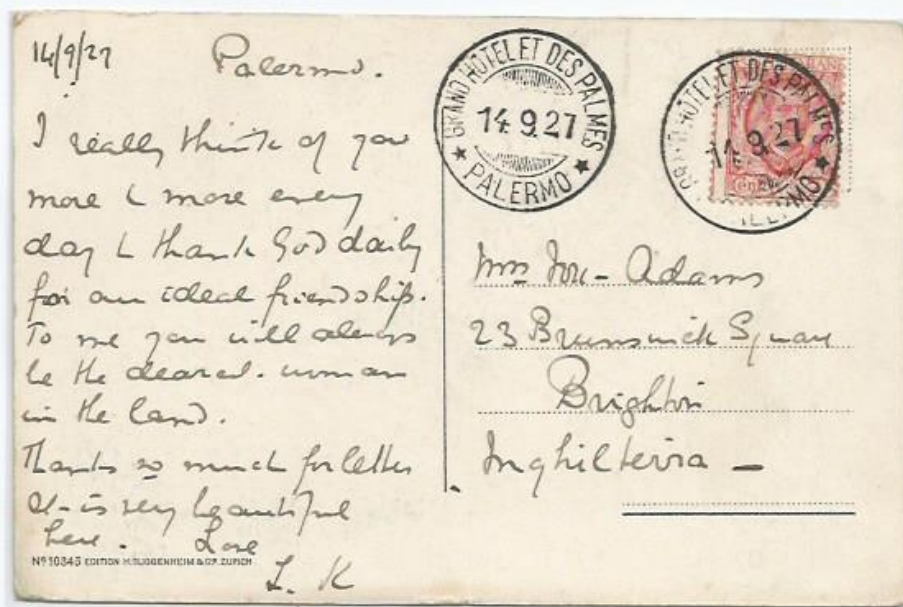 14/9/27 Palermo.
I really think of you
more & more every
day & thank God daily
for our ideal friendship.
To me you will always
be the dearest woman
in the land.
Thanks so much for letter
It is very beautiful
here. Love
L. K
No 10345 EDITION H. GUGGENHEIM & Co. ZURICH
GRAND HOTEL ET DES PALMES
14.9.27
PALERMO
GRAND HOTEL ET DES PALMES
14.9.27
PALERMO
Mrs Adams
23 Brunswick Square
Brighton
Inghilterra